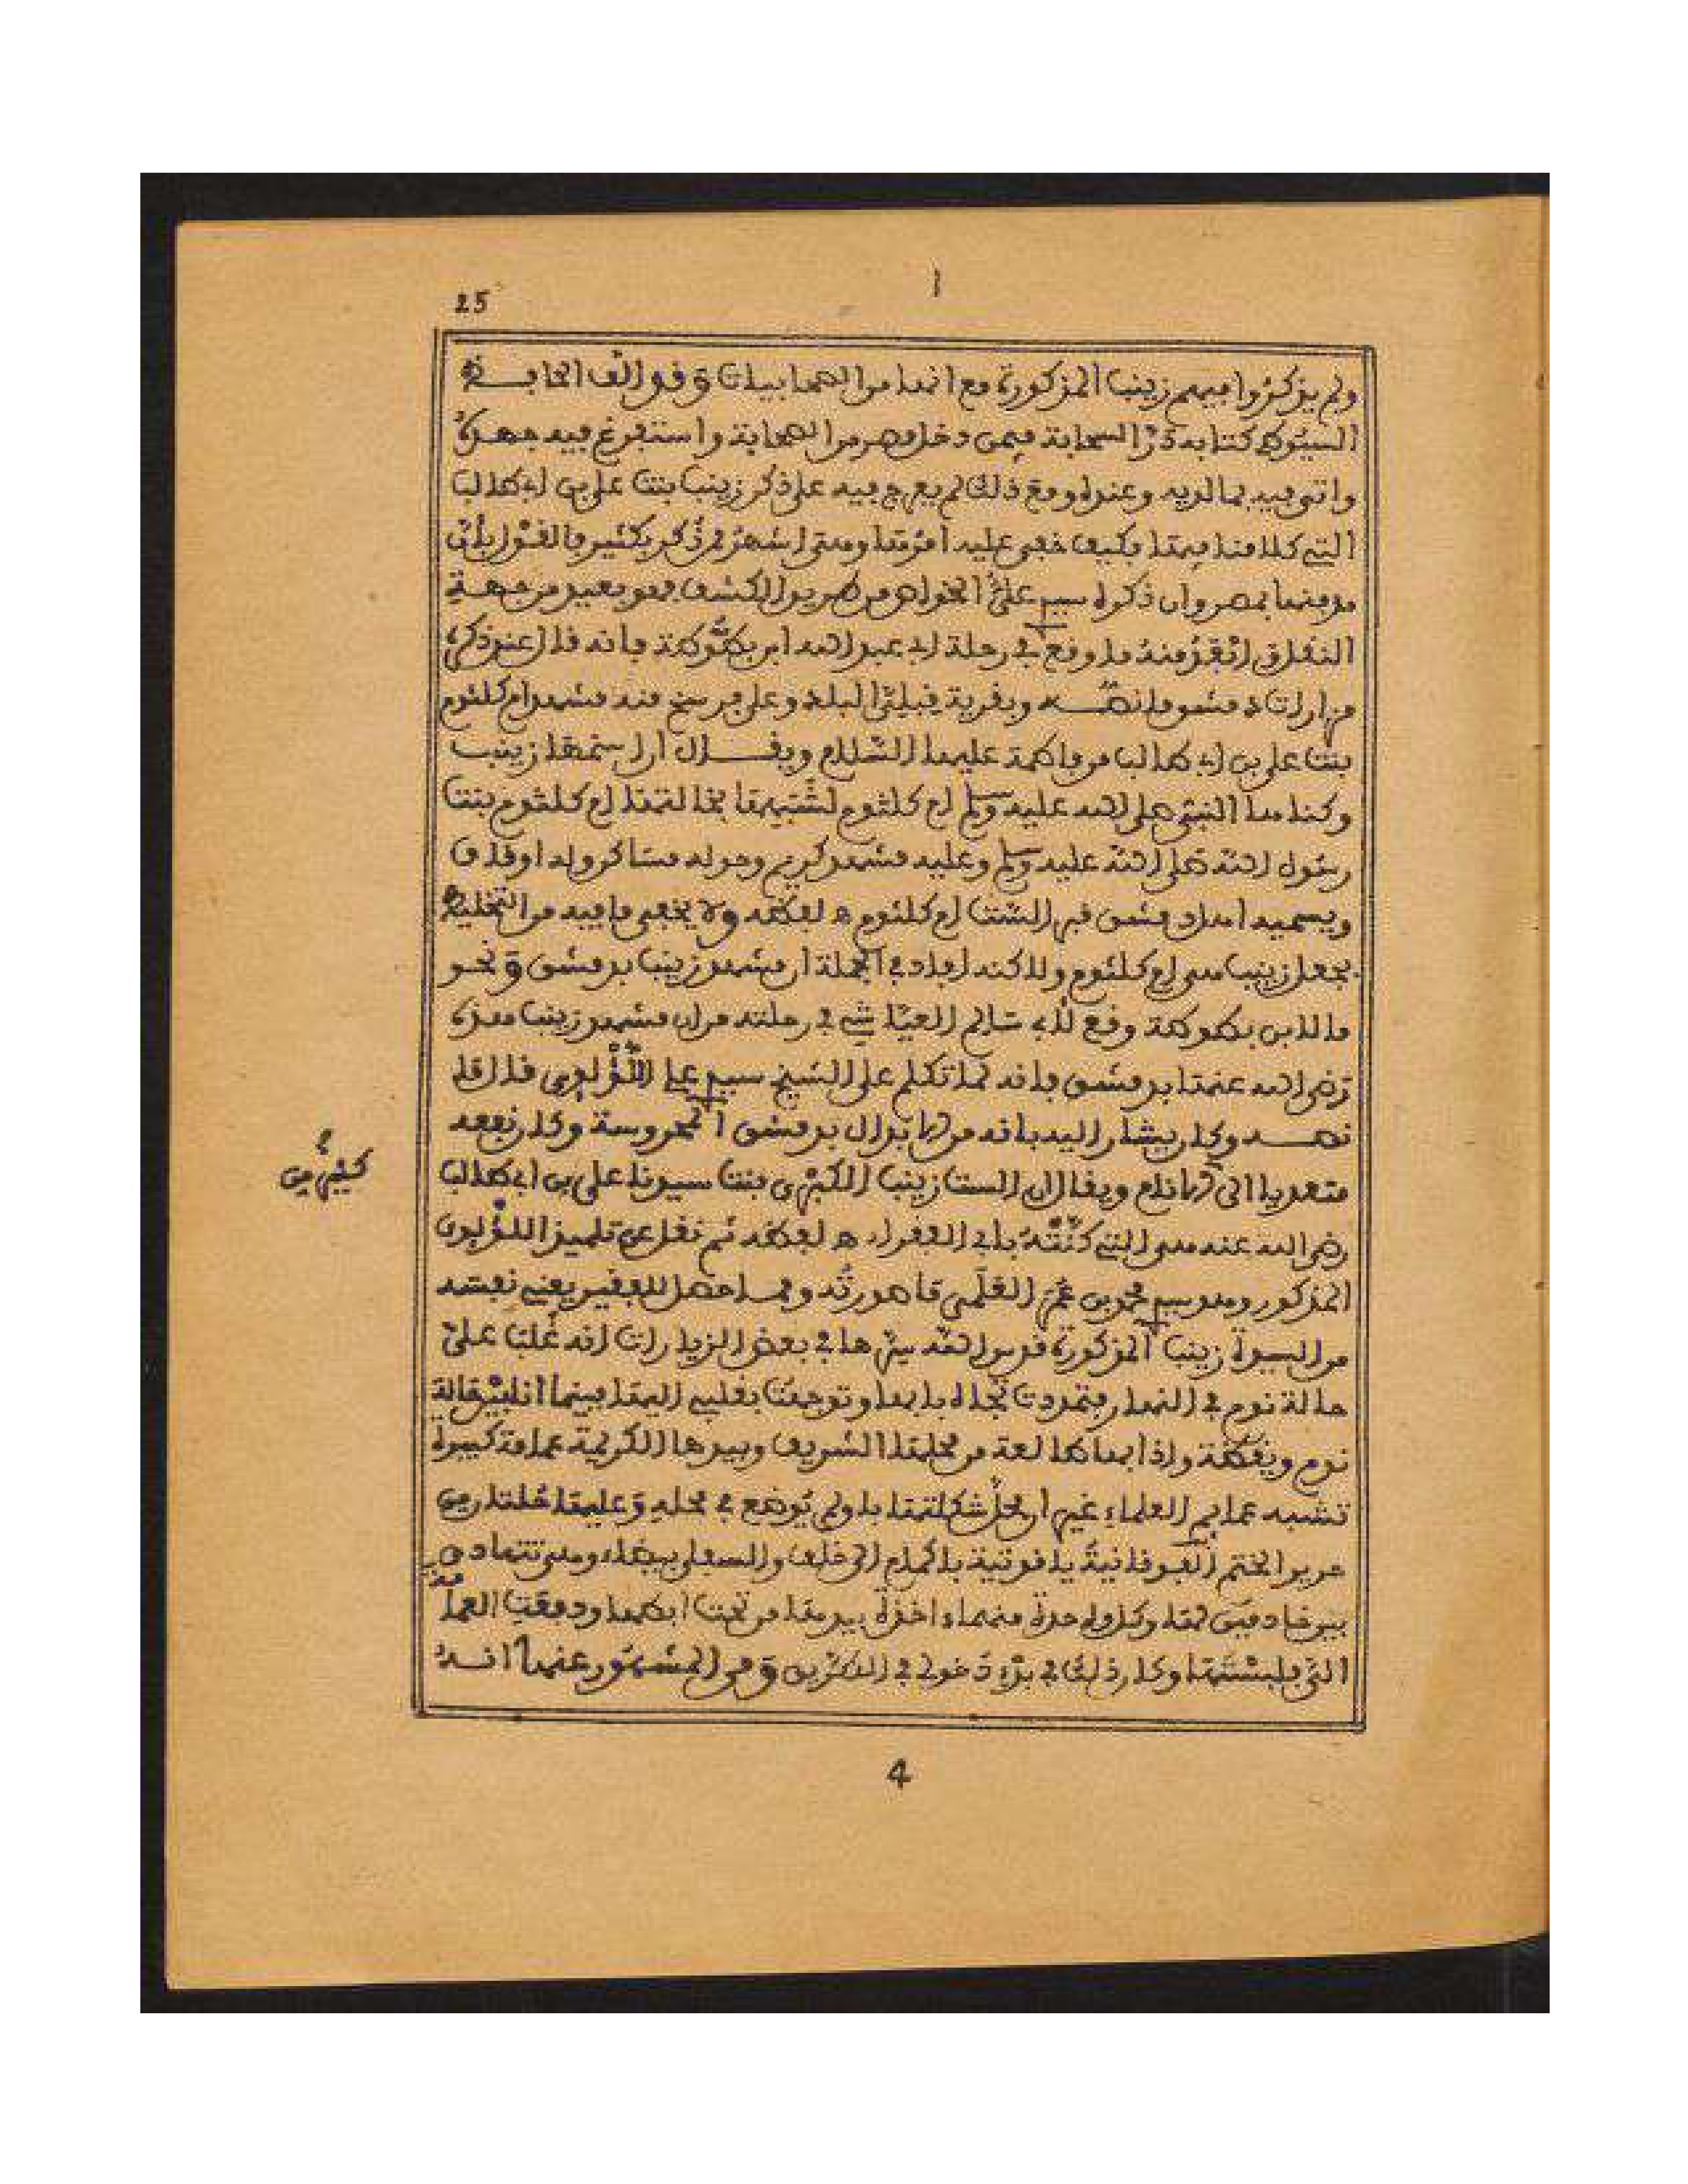 25
ولم يذكروا فيهم زينب المذكورة مع انها من الصحابيات وقد الف الحافظ
السيوطي كتابه در السحابة فيمن دخل مصر من الصحابة واستفرغ فيه جهده
واتى فيه بما لديه وعنده ومع ذلك لم يعرج فيه على ذكر زينب بنت علي بن ابي طالب
التي كلامنا فيها فكيف خفي عليه امرها وهي اشهر ممن ذكر بكثير فالقول بأن
مدفنها بمصر وان ذكره سيدي علي الخواص من طريق الكشف فهو بعيد من جهة
النقل وابعد منه ما وقع في رحلة ابي عبد الله ابن بطوطة فانه قال عند ذكره
مزارات دمشق ما نصه وبقرية قبلي البلد وعلى فرسخ منه مشهد ام كلثوم
بنت علي بن ابي طالب من فاطمة عليها السلام ويقال ان اسمها زينب
وكناها النبي صلى الله عليه وسلم ام كلثوم لشبهها بخالتها ام كلثوم بنت
رسول الله صلى الله عليه وسلم وعليه مشهد كريم وحوله مساكن وله اوقاف
ويسميه اهل دمشق قبر الست ام كلثوم ه لفظه ولا يخفى ما فيه من التخليط
بجعل زينب هي ام كلثوم ولاكنه افاد في الجملة ان مشهد زينب بدمشق ونحو
ما لابن بطوطة وقع لأبي سالم العياشي في رحلته من ان مشهد زينب هذه
رضي الله عنها بدمشق فانه لما تكلم على الشيخ سيدي علي اللؤلؤي قال ما
نصه وكان يشار اليه بانه من ابدال دمشق المحروسة وكان نفعه
متعديا الى الانام ويقال ان الست زينب الكبرى بنت سيدنا علي بن ابي طالب
رضي الله عنه هي التي كنته بابي الفقراء ه لفظه ثم نقل عن تلميذ اللؤلؤي
المذكور وهو سيدي محمد بن عمر العلمي ما صورته ومما حصل للفقير يعني نفسه
من السيدة زينب المذكورة قدس الله سرها في بعض الزيارات انه غلب علي
حالة نوم في النهار فتمددت تجاه بابها وتوجهت بقلبي اليها فبينما انا بين حالة
نوم ويقظة واذا بها طالعة من محلها الشريف وبيدها الكريمة عمامة كبيرة
تشبه عمائم العلماء غير ان شكلتها ولم يوضع في محله وعليها حلتان من
حرير الختم الفوقانية ياقوتية باكمام والسفلى بيضاء وهي تتهادى
بين خادمين لها وكل واحدة منهما اخذة بيدها من تحت ابطها ودفعت العمامة
التي فلبستها وكان ذلك في بدء دخولي في الطريق ومن المشهور عنها انه
كثير من
4